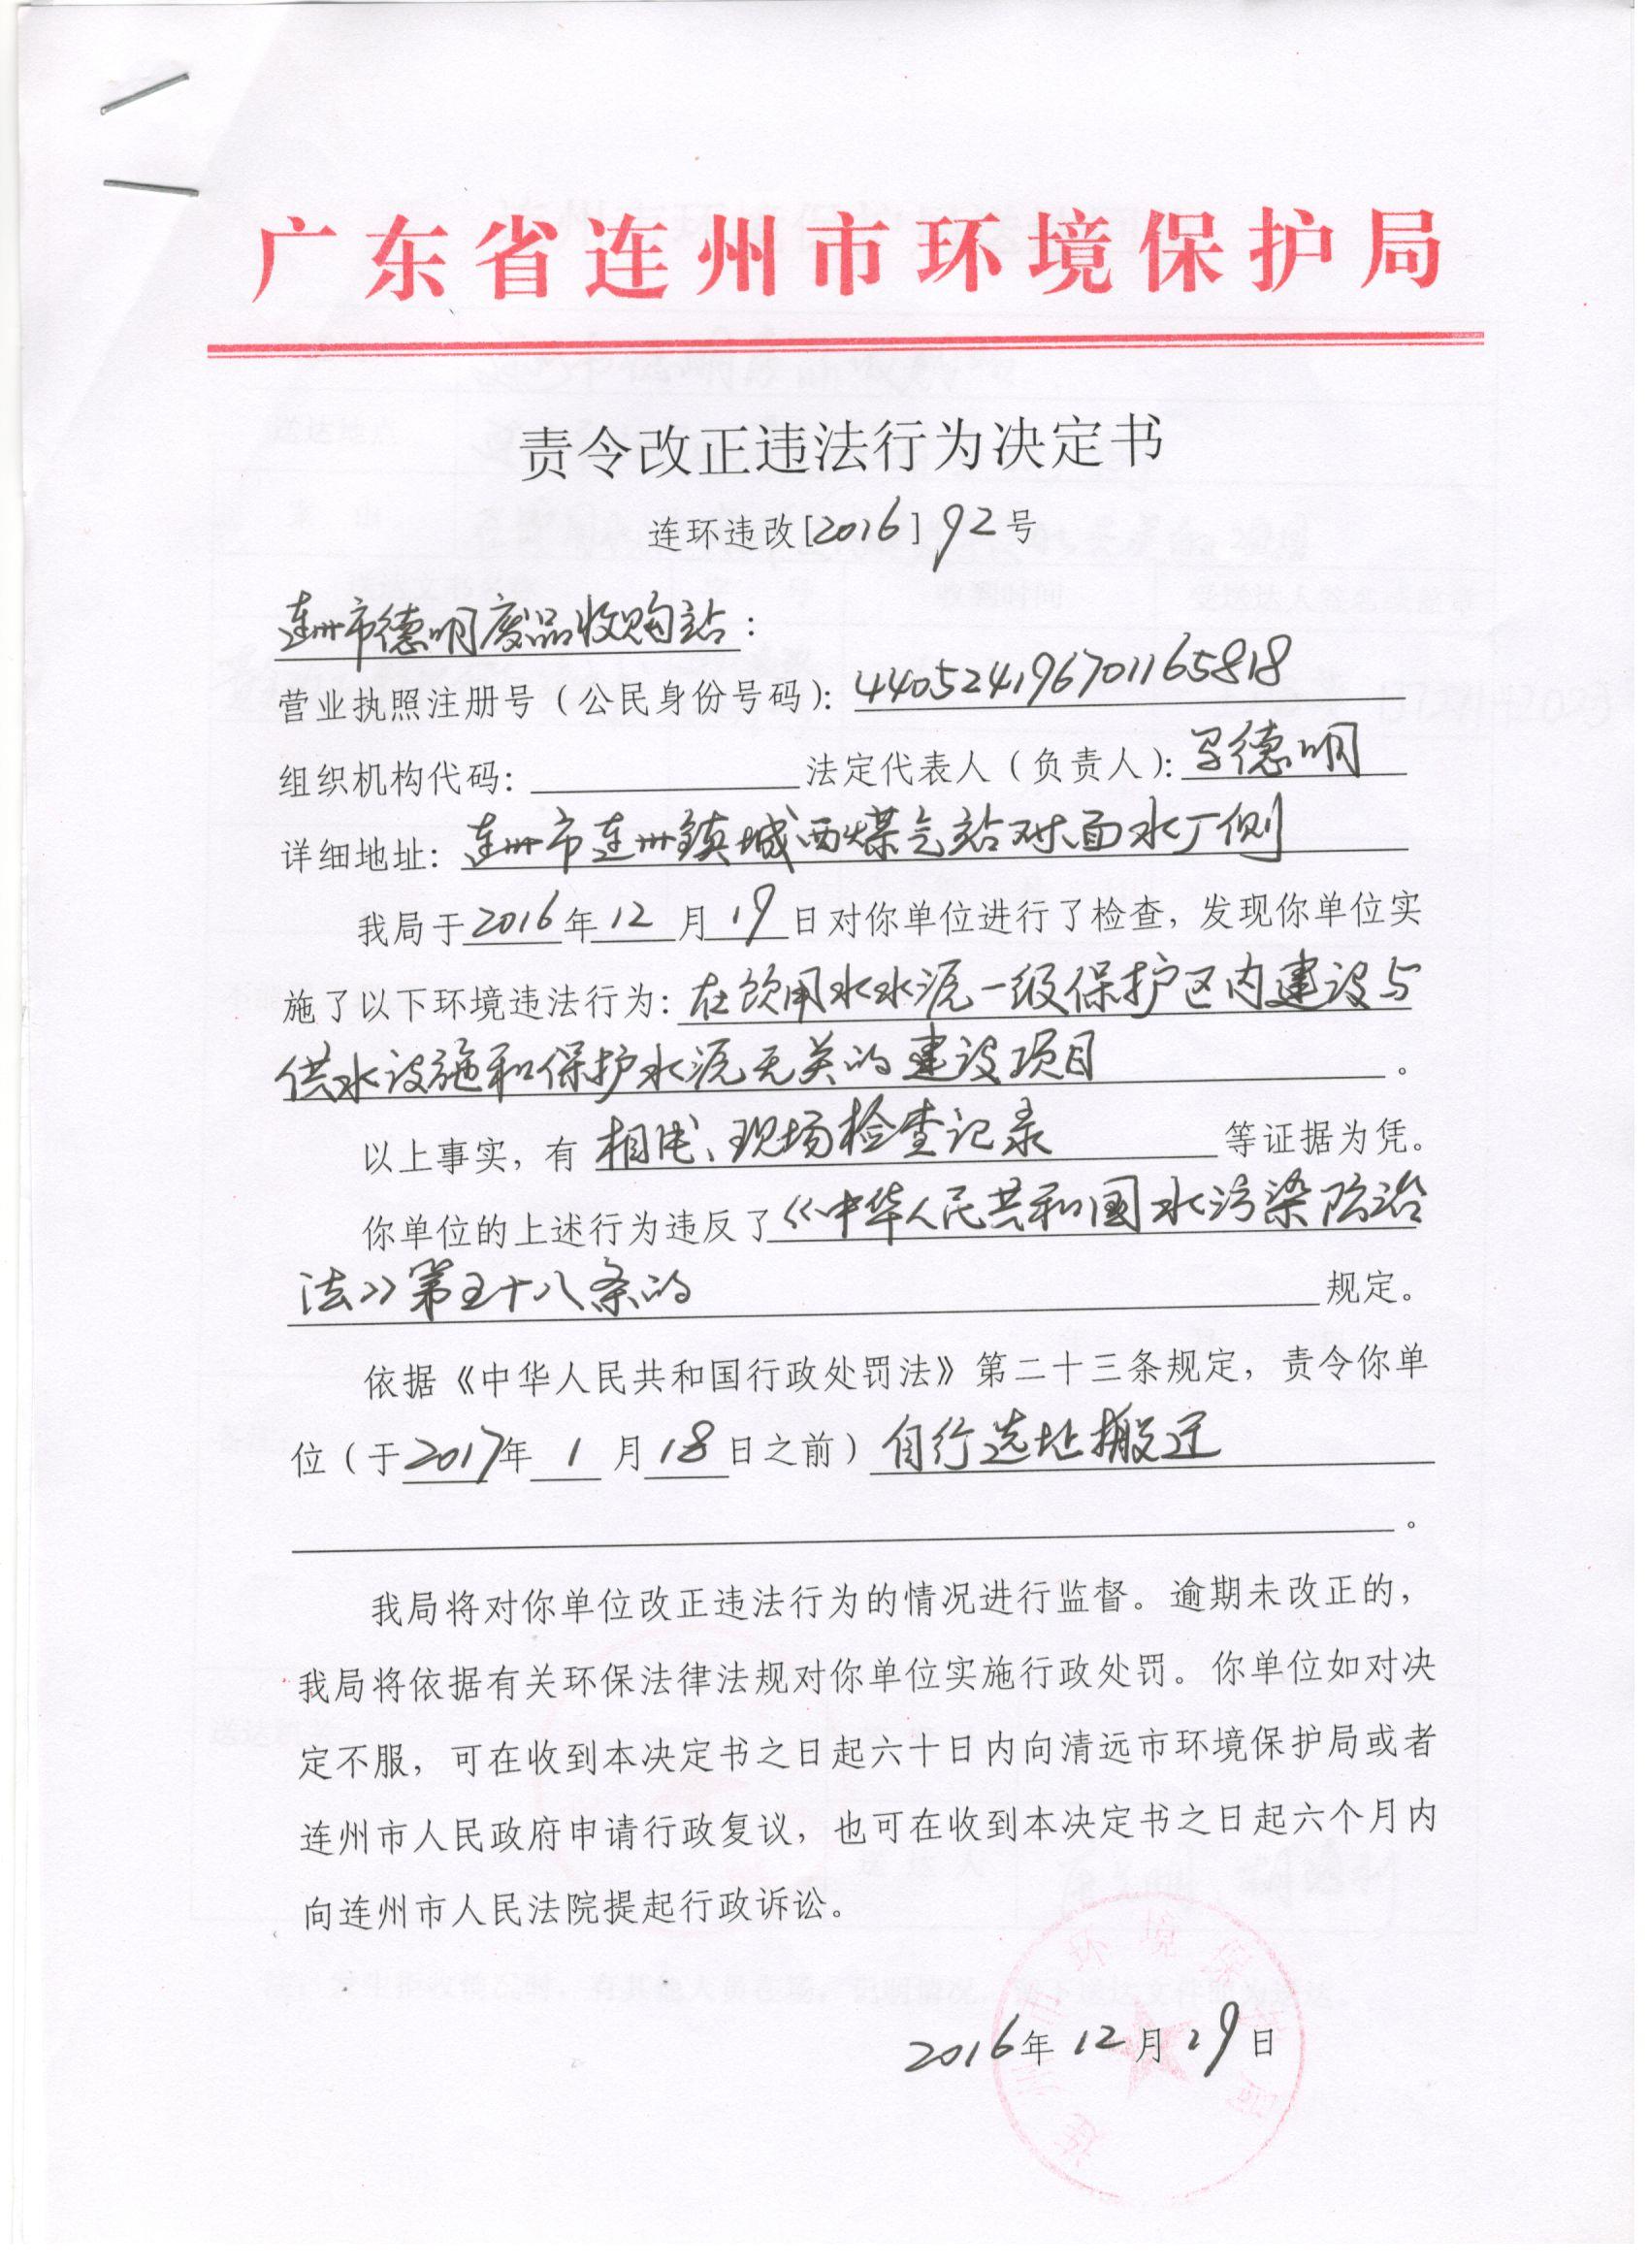 广东省连州市环境保护局
责令改正违法行为决定书
连环违改[2016]92号
连州市德明废品收购站：
营业执照注册号（公民身份号码）：440524196701165818
组织机构代码：法定代表人（负责人）：马德明
详细地址：连州市连州镇城西煤气站对面水厂侧
我局于2016年12月19日对你单位进行了检查，发现你单位实
施了以下环境违法行为：在饮用水水源一级保护区内建设与
供水设施和保护水源无关的建设项目。
以上事实，有相片、现场检查记录等证据为凭。
你单位的上述行为违反了《中华人民共和国水污染防治
法》第五十八条的规定。
依据《中华人民共和国行政处罚法》第二十三条规定，责令你单
位（于2017年1月18日之前）自行选址搬迁
。
我局将对你单位改正违法行为的情况进行监督。逾期未改正的，
我局将依据有关环保法律法规对你单位实施行政处罚。你单位如对决
定不服，可在收到本决定书之日起六十日内向清远市环境保护局或者
连州市人民政府申请行政复议，也可在收到本决定书之日起六个月内
向连州市人民法院提起行政诉讼。
连州市环境保护局
2016年12月19日